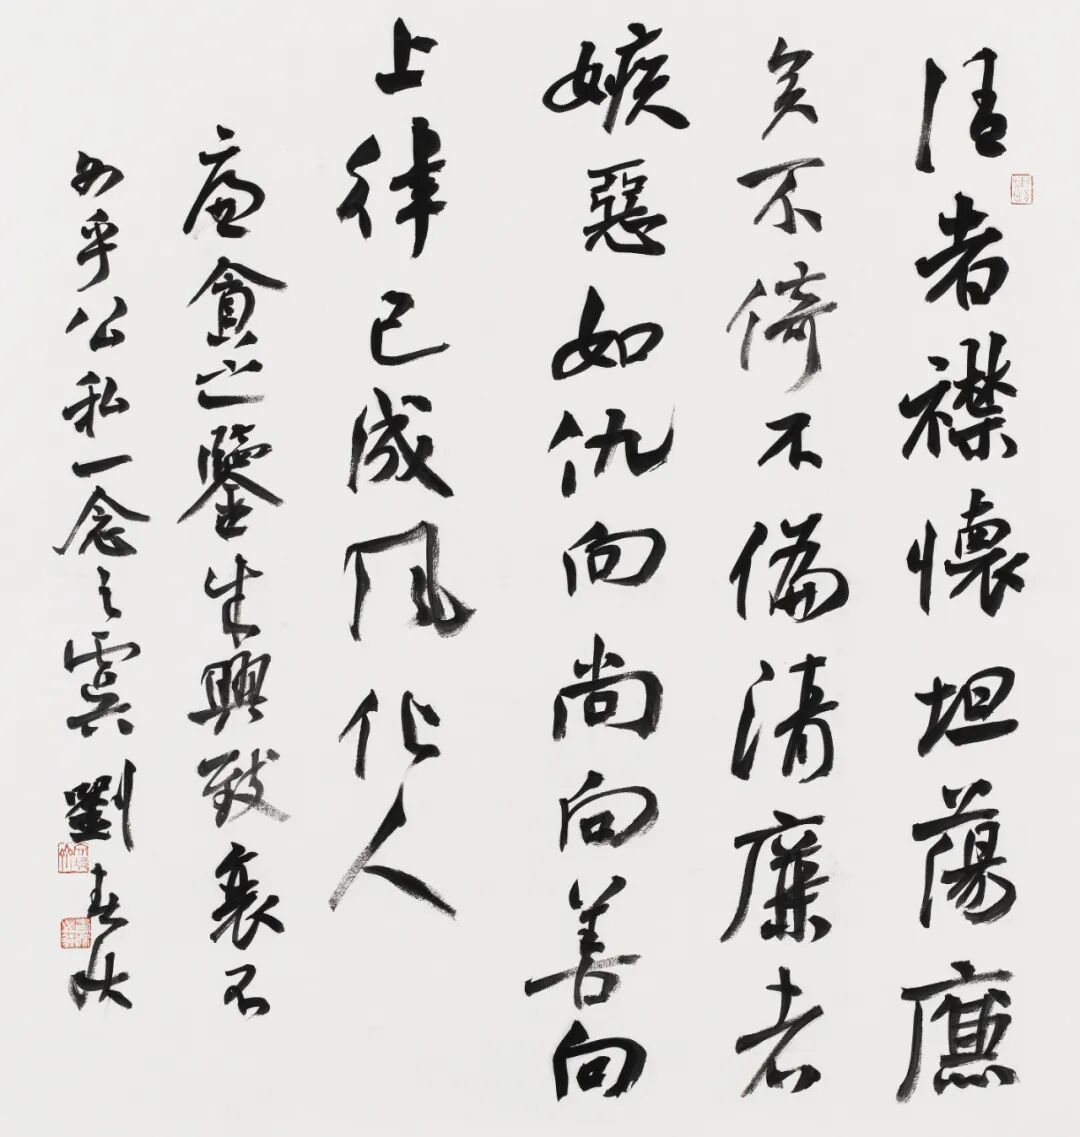 清者襟懷坦蕩廉
不倚不偏清廉者
嫉惡如仇向尚向善向
上律己成风化人
廉貪之鑒生興致衰不
外乎公私一念之虞 劉春